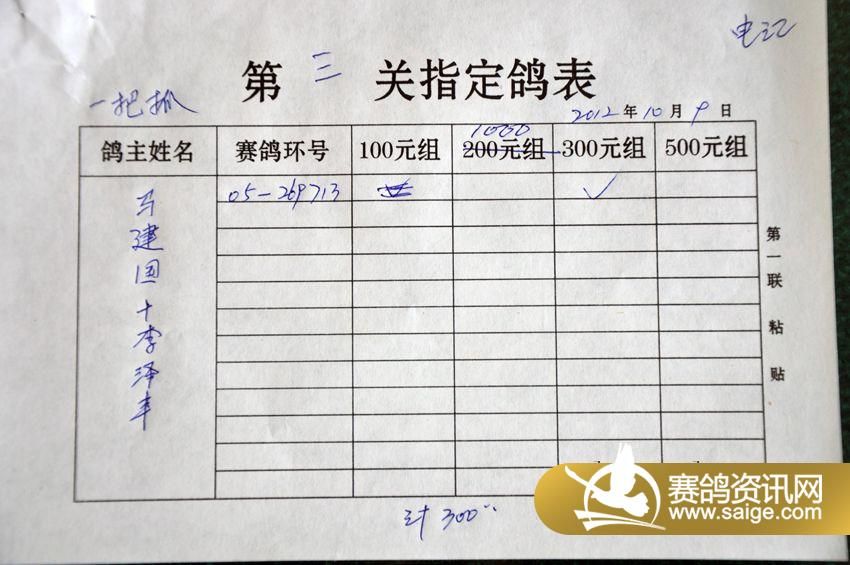 电汇
第 三 关指定鸽表
一把抓
2012年10月9日
1000
鸽主姓名 赛鸽环号 100元组 200元组 300元组 500元组
马建国+李泽丰 05-269713 ✓
第一联 粘贴
计 300
赛鸽资讯网
www.saige.com